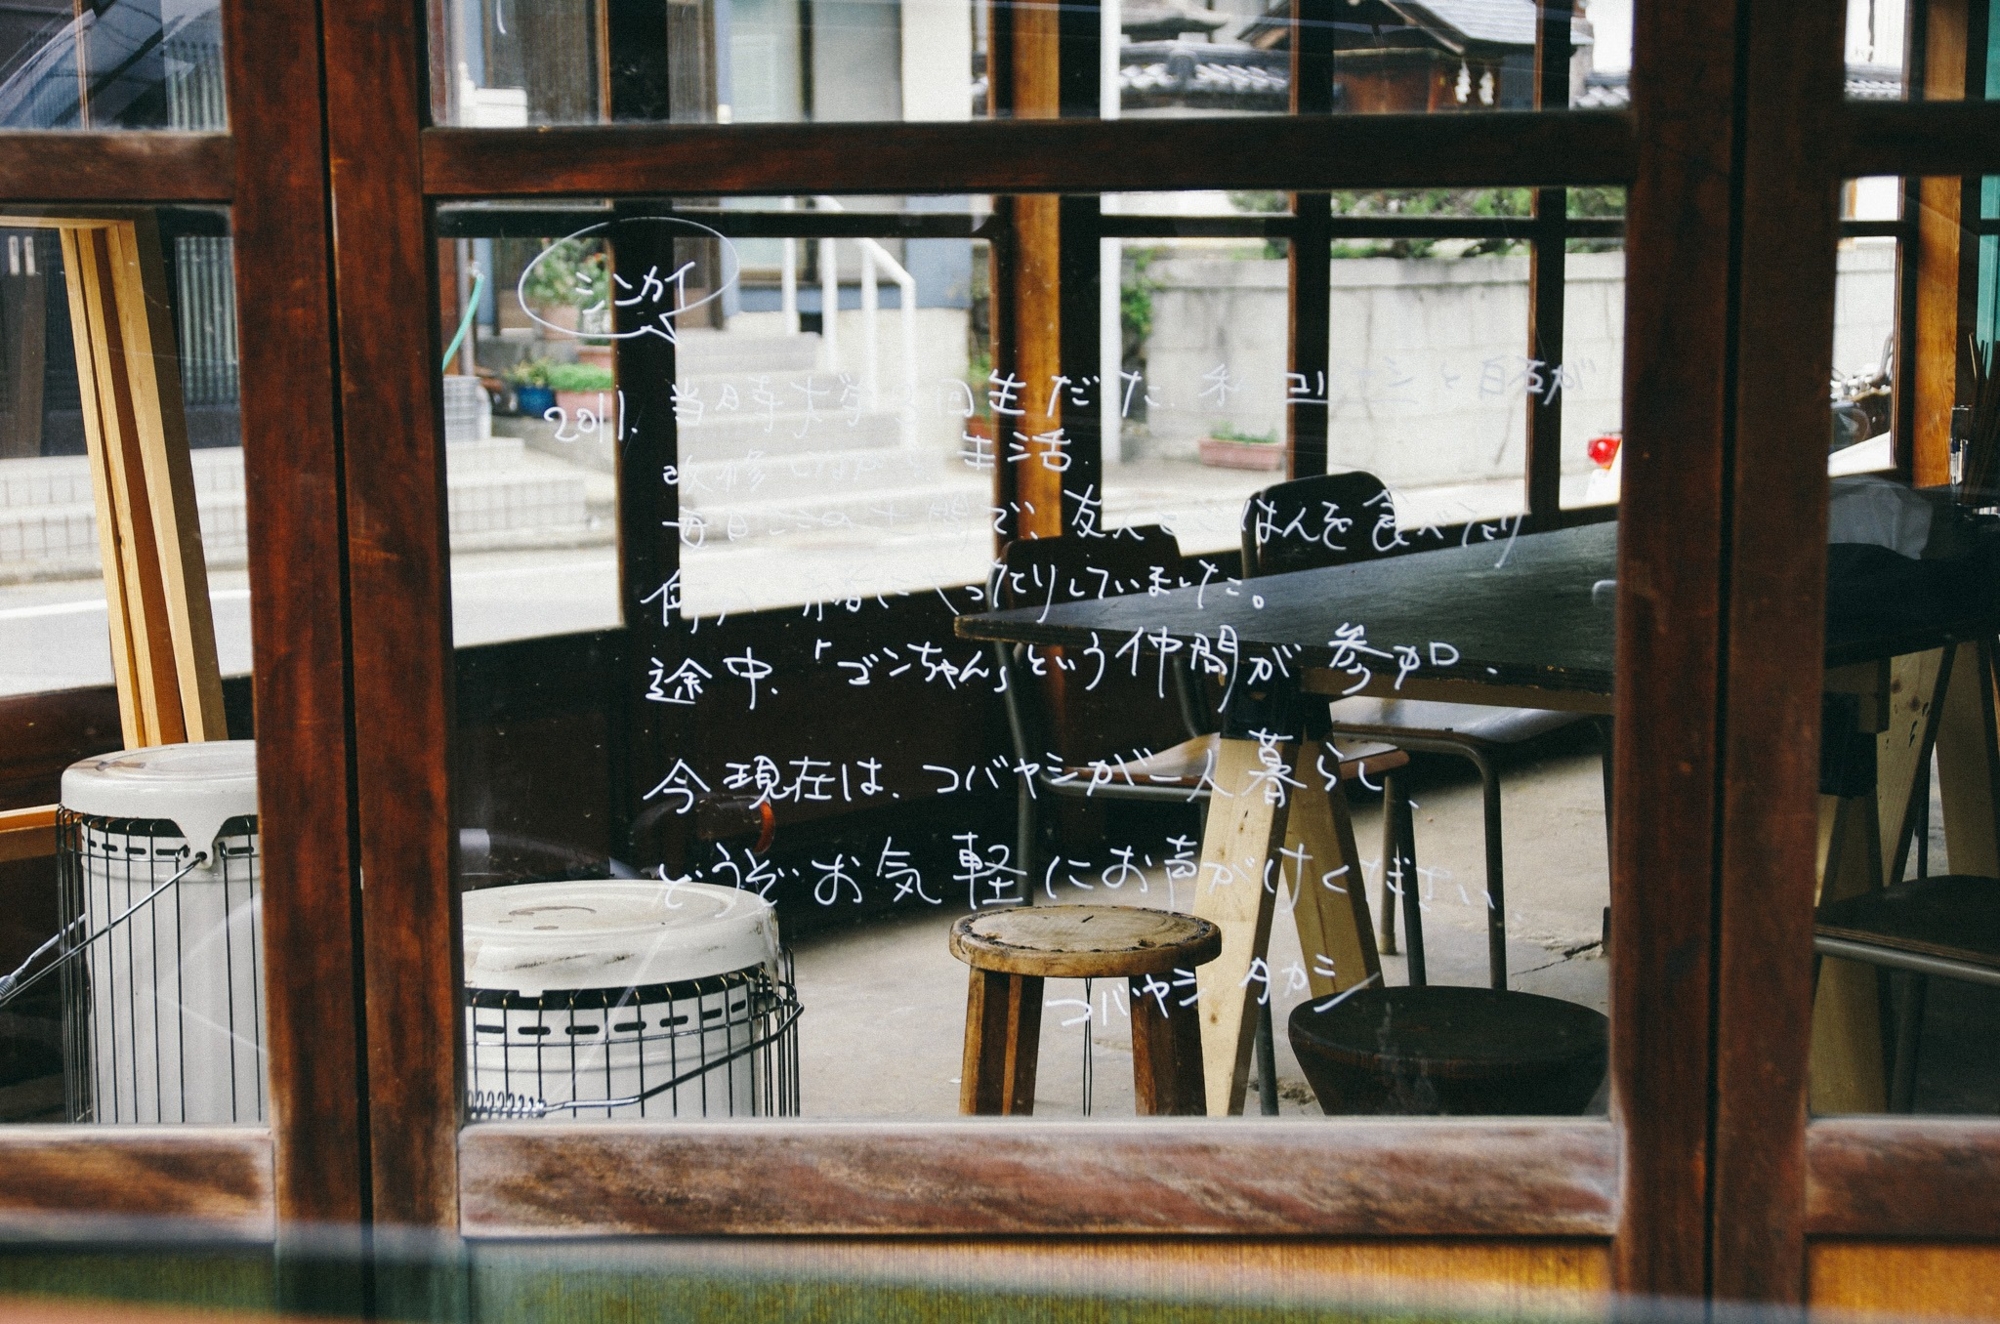 シンカイ
2011. 当時大学 回生だった 私 コバヤシと白石が
改修しながら 生活.
毎日この土間で、友人とごはんを食べたり
何人 にいったりしていました。
途中、「ゴンちゃん」という仲間が参加、
今現在は、コバヤシが一人暮らし、
どうぞお気軽にお声がけください、
コバヤシタカシ